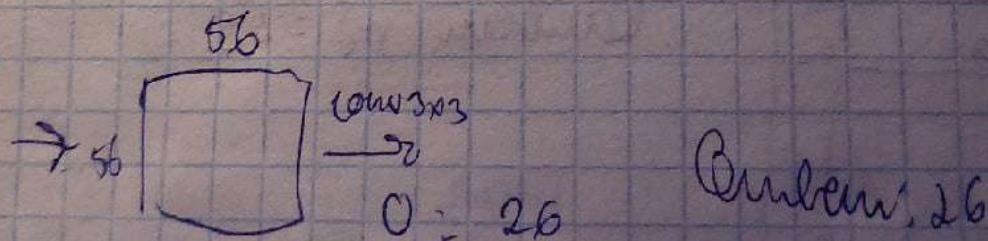 56
→ 56 conv 3x3 →
O = 26 Ответ: 26